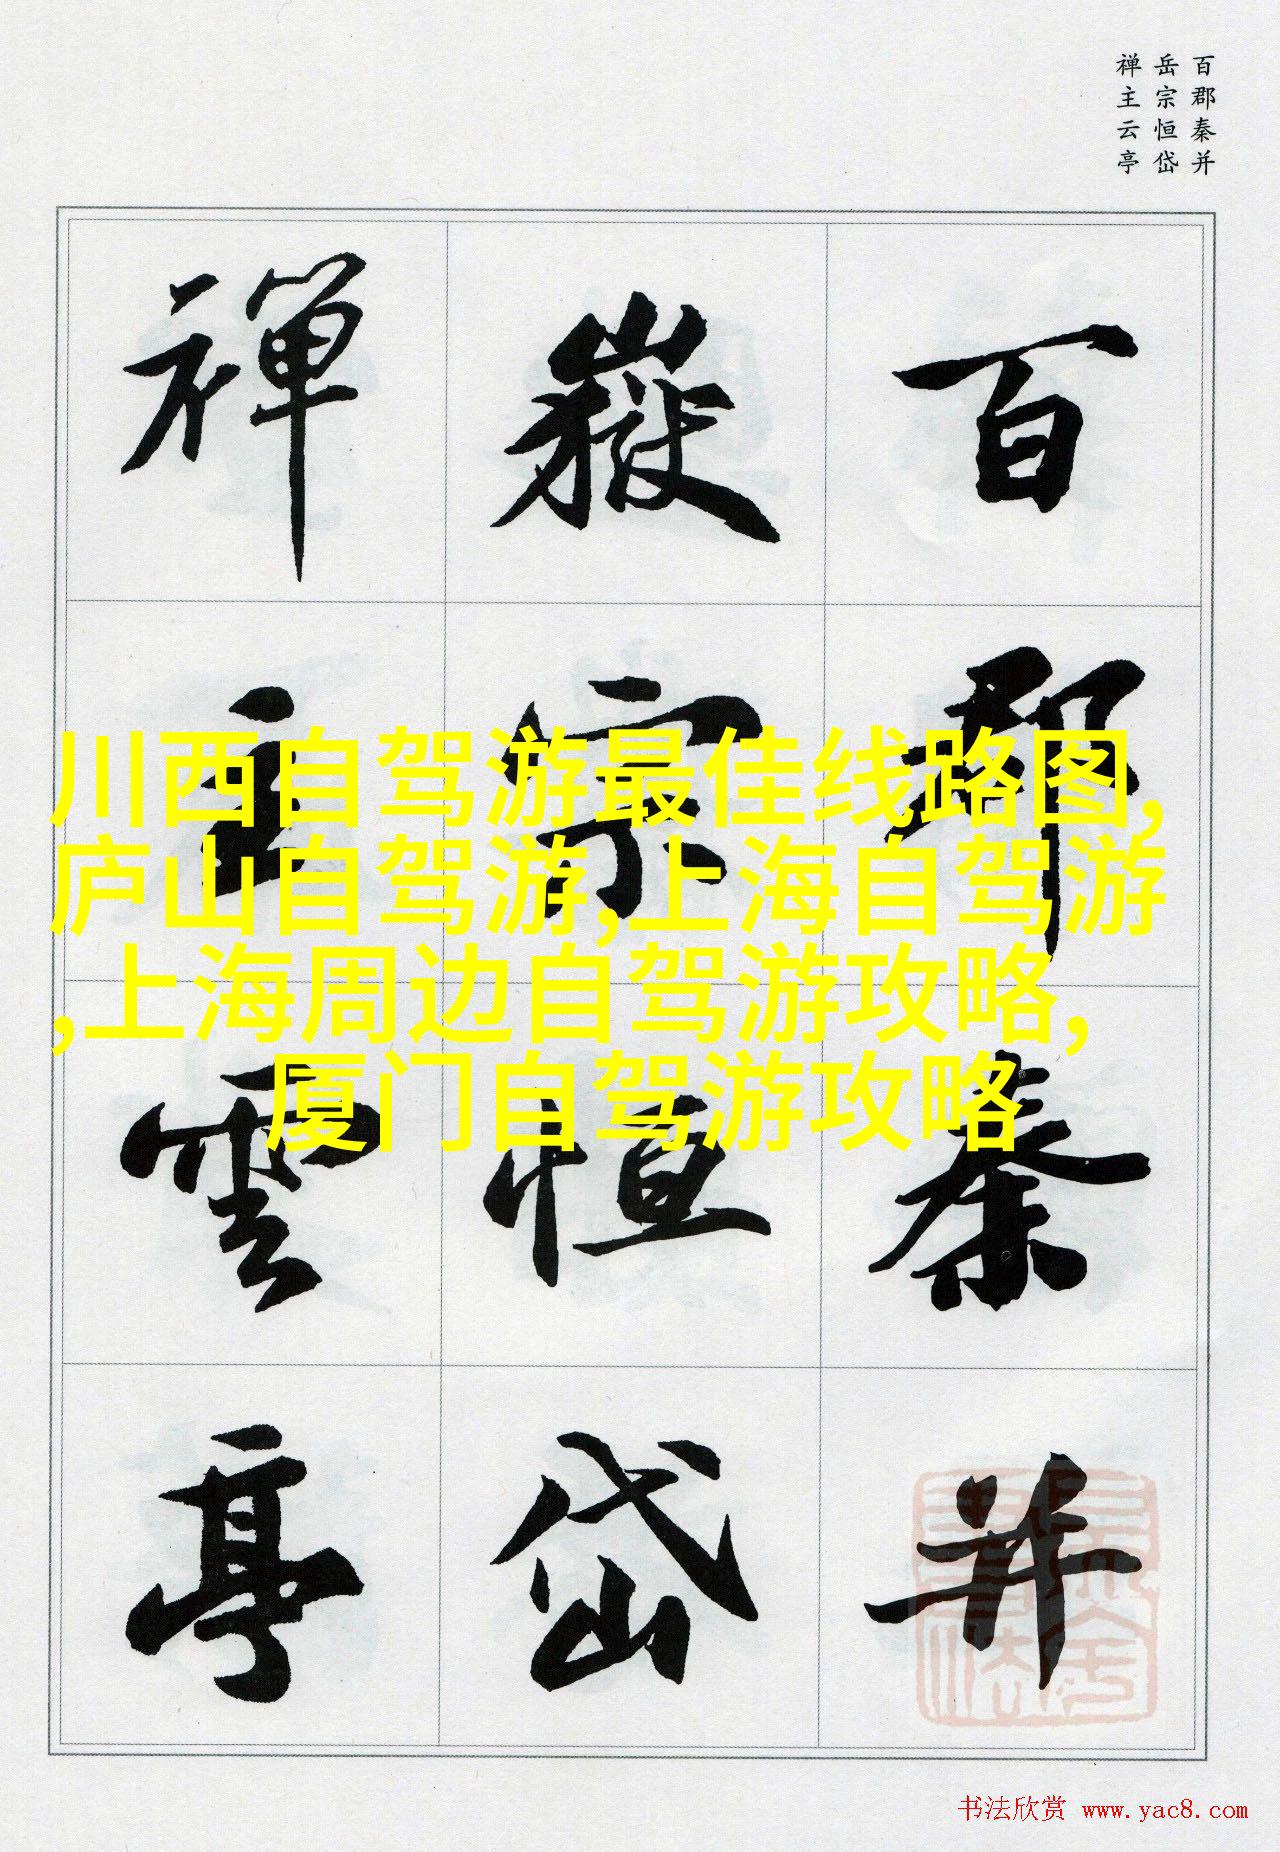 百郡秦并
岳宗恒岱
禅主云亭
百郡秦并
嶽宗恒岱
禪主雲亭
川西自驾游最佳线路图,
庐山自驾游,上海自驾游
,上海周边自驾游攻略,
厦门自驾游攻略
书法欣赏 www.yac8.com